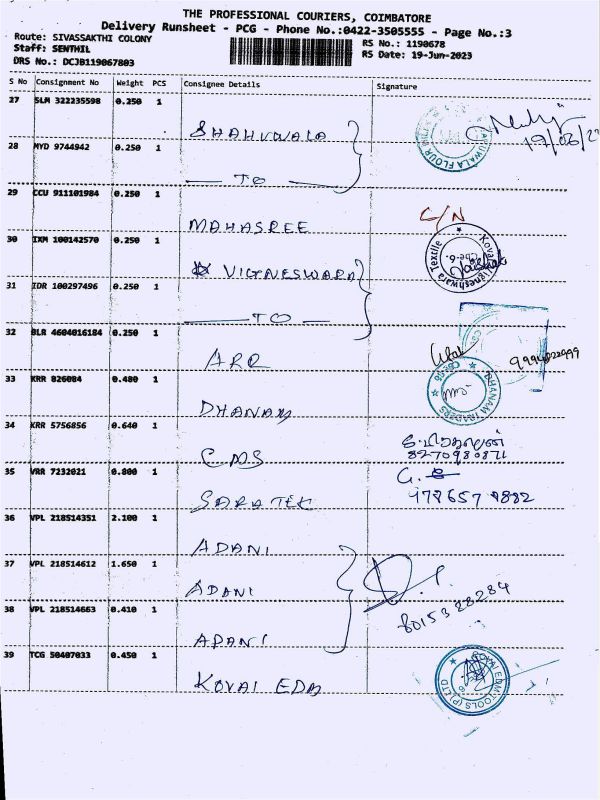 THE PROFESSIONAL COURIERS, COIMBATORE
Delivery Runsheet - PCG - Phone No.:0422-3505555 - Page No.:3
Route: SIVASSAKTHI COLONY
Staff: SENTHIL
DRS No.: DCJB119067803
RS No.: 1190678
RS Date: 19-Jun-2023
S No Consignment No Weight PCS Consignee Details Signature
27 SLM 322235598 0.250 1 SHAHUWALA
19/06/2
28 MYD 9744942 0.250 1 TO
29 CCU 911101984 0.250 1 MAHASREE
C/N
30 IXM 100142570 0.250 1 VIGNESWARA
31 IDR 100297496 0.250 1 TO
32 BLR 4604016184 0.250 1 ARR
33 KRR 826084 0.480 1 DHANAM
DHANAM TRADERS
34 KRR 5756856 0.640 1 CMS
8270980871
35 VRR 7232021 0.800 1 SARATEK
36 VPL 218514351 2.100 1 ADANI
37 VPL 218514612 1.650 1 ADANI
8015388284
38 VPL 218514663 0.410 1 ADANI
39 TCG 50407033 0.450 1 KOVAI EDM
KOVAI EDM TOOLS (P) LTD